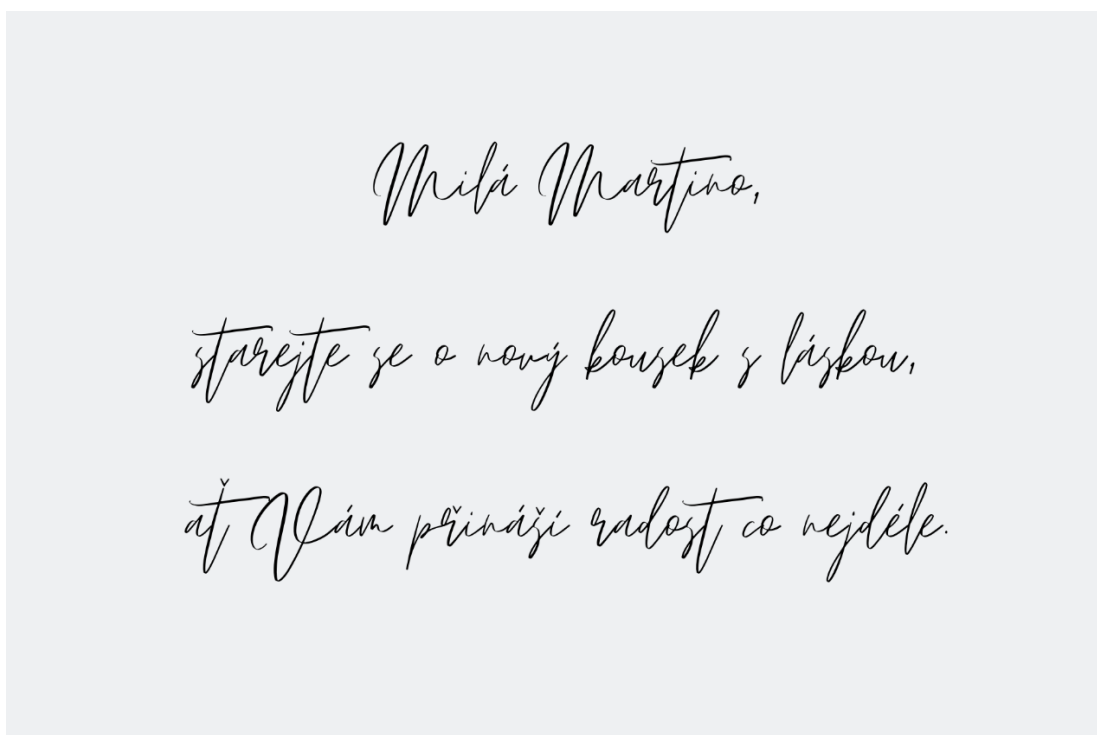 Milá Martino,
starejte se o nový kousek s láskou,
ať Vám přináší radost co nejdéle.